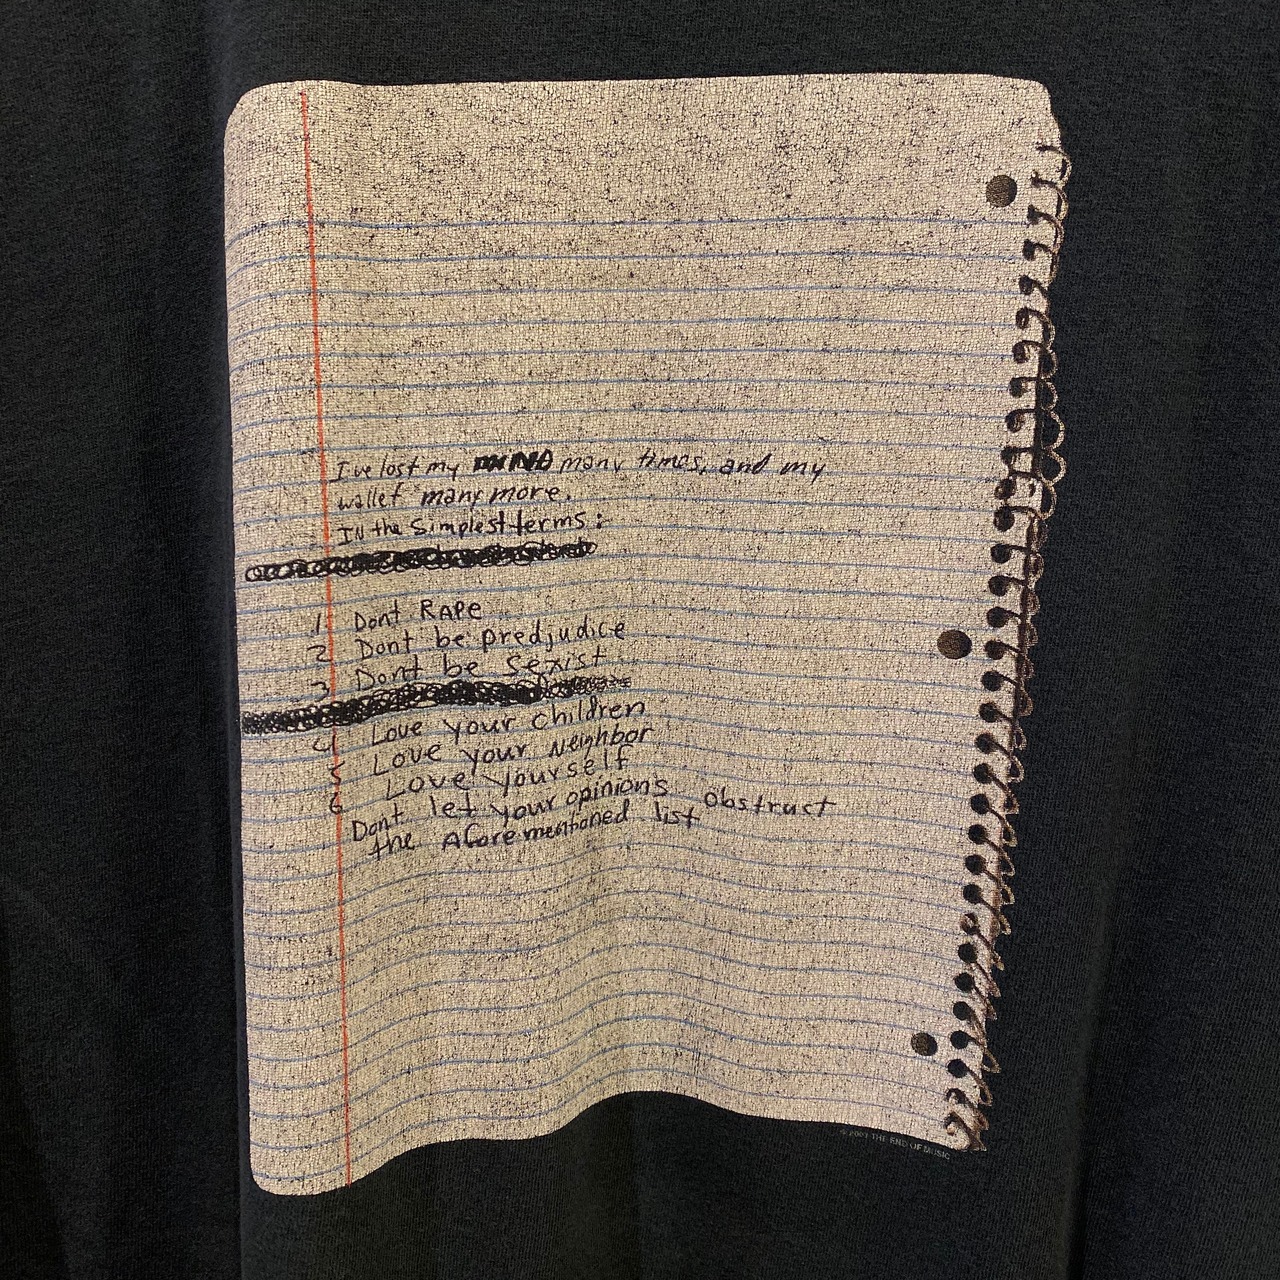 I've lost my MIND many times, and my
wallet many more.
IN the Simplest terms:
1 Dont RAPe
2 Dont be predjudice
3 Dont be Sexist
4 Love your children
5 Love your Neighbor
6 Love yourself
Dont let your opinions obstruct
the Aforementioned list
© 2001 THE END OF MUSIC